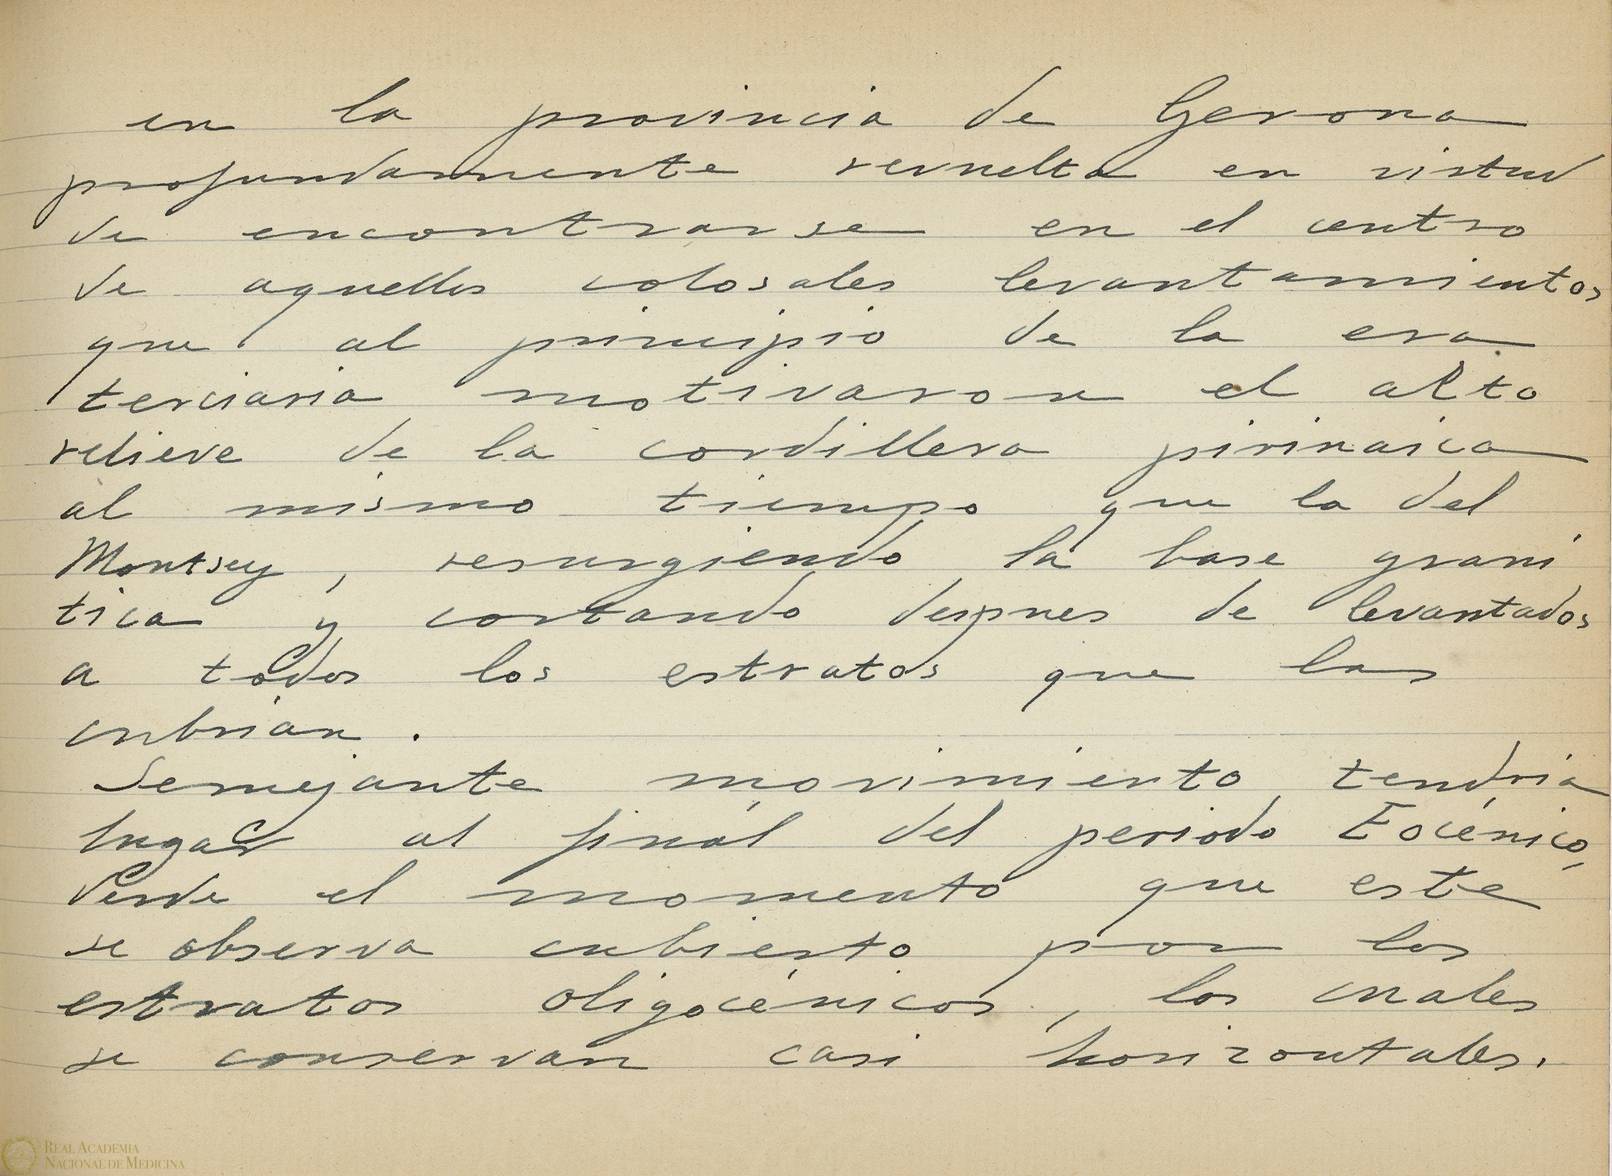 en la provincia de Gerona
profundamente revuelta en virtud
de encontrarse en el centro
de aquellos colosales levantamientos
que al principio de la era
terciaria motivaron el alto
relieve de la cordillera pirinaica
al mismo tiempo que la del
Montseny, resurgiendo la base graní
tica y cortando despues de levantados
a todos los estratos que las
cubrian.
Semejante movimiento tendria
lugar al final del periodo Eocénico,
desde el momento que este
se observa cubierto por los
estratos oligocénicos, los cuales
se conservan casi horizontales.
REAL ACADEMIA
NACIONAL DE MEDICINA